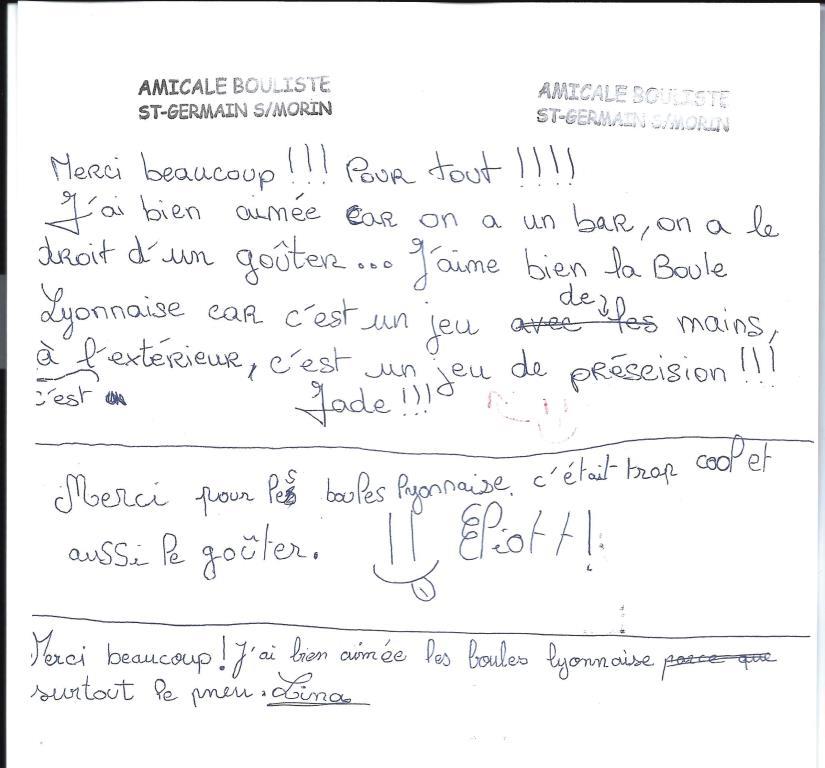 AMICALE BOULISTE
ST-GERMAIN S/MORIN
AMICALE BOULISTE
ST-GERMAIN S/MORIN
Merci beaucoup !!! Pour tout !!!!
J'ai bien aimée car on a un bar, on a le
droit d'un goûter... J'aime bien la Boule
de
Lyonnaise car c'est un jeu avec les mains,
à l'extérieur, c'est un jeu de préscision !!!
c'est
Jade !!!
Merci pour les boules lyonnaise. c'était trop cool et
aussi le goûter. Eliott !
Merci beaucoup ! J'ai bien aimée les boules lyonnaise parce que
surtout le pneu. Lina